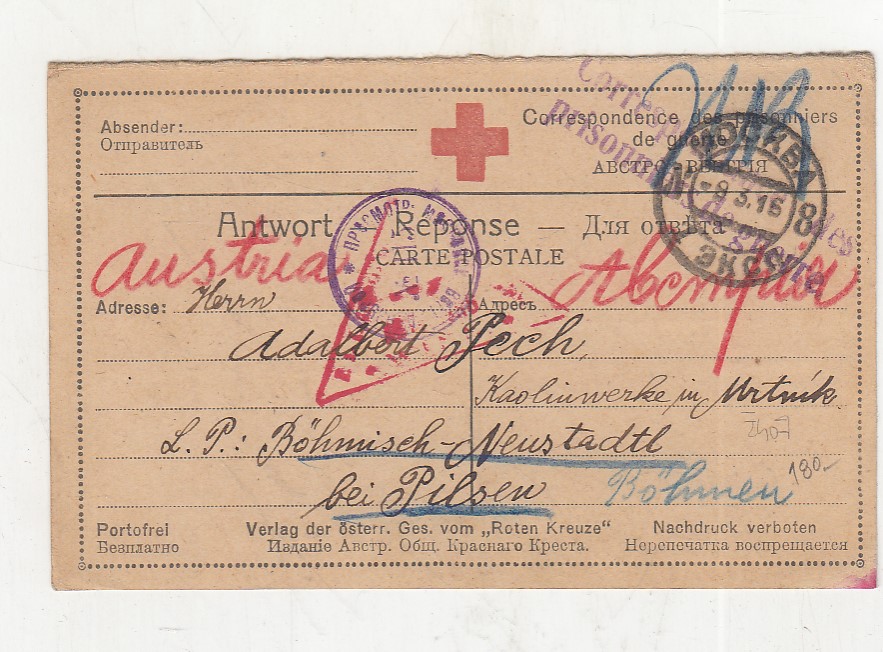 Absender:
Отправитель
Correspondence des prisonniers
de guerre
АВСТРО-ВЕНГРІЯ
МОСКВА
-9 3.16
8
ЭКСП.
Antwort — Réponse — Для отвѣта
CARTE POSTALE
Austria
Австрія
Adresse: Herrn
Адресъ
Adalbert Pech,
Kaolinwerke in Wrtnik
L. P.: Böhmisch-Neustadtl
2407
bei Pilsen Böhmen
180.-
Portofrei
Verlag der österr. Ges. vom „Roten Kreuze“
Nachdruck verboten
Безплатно
Изданіе Австр. Общ. Краснаго Креста.
Нерепечатка воспрещается